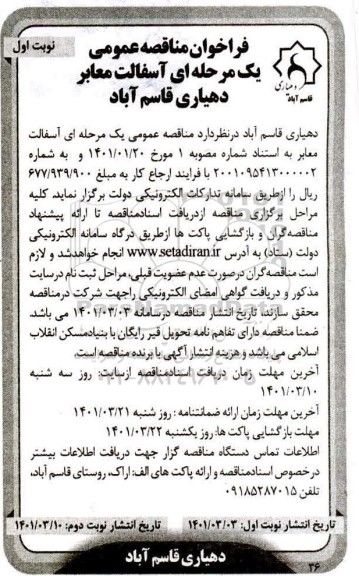 نوبت اول
فراخوان مناقصه عمومی
یک مرحله ای آسفالت معابر
دهیاری قاسم آباد
دهیاری
قاسم آباد
دهیاری قاسم آباد درنظردارد مناقصه عمومی یک مرحله ای آسفالت
معابر به استناد شماره مصوبه ۱ مورخ ۱۴۰۱/۰۱/۲۰ و به شماره
۲۰۰۱۰۹۵۴۱۳۰۰۰۰۰۲ با فرایند ارجاع کار به مبلغ ۶۷۷/۹۳۹/۹۰۰
ریال را ازطریق سامانه تدارکات الکترونیکی دولت برگزار نماید. کلیه
مراحل برگزاری مناقصه ازدریافت اسنادمناقصه تا ارائه پیشنهاد
مناقصه گران و بازگشایی پاکت ها ازطریق درگاه سامانه الکترونیکی
دولت (ستاد) به آدرس www.setadiran.ir انجام خواهدشد و لازم
است مناقصه گران درصورت عدم عضویت قبلی، مراحل ثبت نام درسایت
مذکور و دریافت گواهی امضای الکترونیکی راجهت شرکت درمناقصه
محقق سازند. تاریخ انتشار مناقصه درسامانه ۱۴۰۱/۰۳/۰۳ می باشد.
ضمنا مناقصه دارای تفاهم نامه تحویل قیر رایگان با بنیادمسکن انقلاب
اسلامی می باشد و هزینه انتشار آگهی با برنده مناقصه است.
آخرین مهلت زمان دریافت اسنادمناقصه ازسایت: روز سه شنبه
۱۴۰۱/۰۳/۱۰
آخرین مهلت زمان ارائه ضمانتنامه : روز شنبه ۱۴۰۱/۰۳/۲۱
مهلت بازگشایی پاکت ها: روز یکشنبه ۱۴۰۱/۰۳/۲۲
اطلاعات تماس دستگاه مناقصه گزار جهت دریافت اطلاعات بیشتر
درخصوص اسنادمناقصه و ارائه پاکت های الف: اراک، روستای قاسم آباد،
تلفن ۰۹۱۸۵۲۸۷۰۱۵
تاریخ انتشار نوبت اول: ۱۴۰۱/۰۳/۰۳ تاریخ انتشار نوبت دوم: ۱۴۰۱/۰۳/۱۰
دهیاری قاسم آباد
۳۶